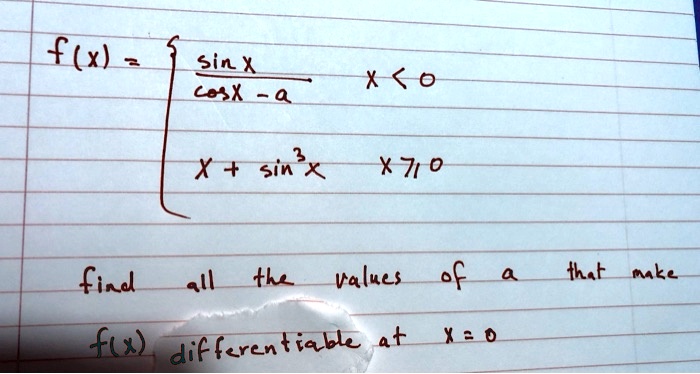 f(x) = { sin x / cos x - a    x < 0
x + sin³x    x ≥ 0
find all the values of a that make
f(x) differentiable at x = 0